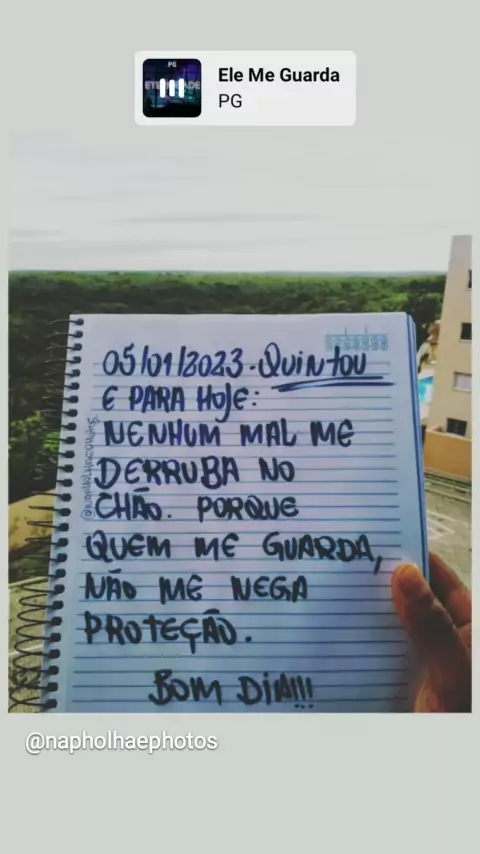 PG
ETERNIDADE
Ele Me Guarda
PG
05/01/2023-Quintou
E PARA HOJE:
NENHUM MAL ME
DERRUBA NO
CHÃO. PORQUE
QUEM ME GUARDA,
NÃO ME NEGA
PROTEÇÃO.
BOM DIA!!!
@napholhaephotos